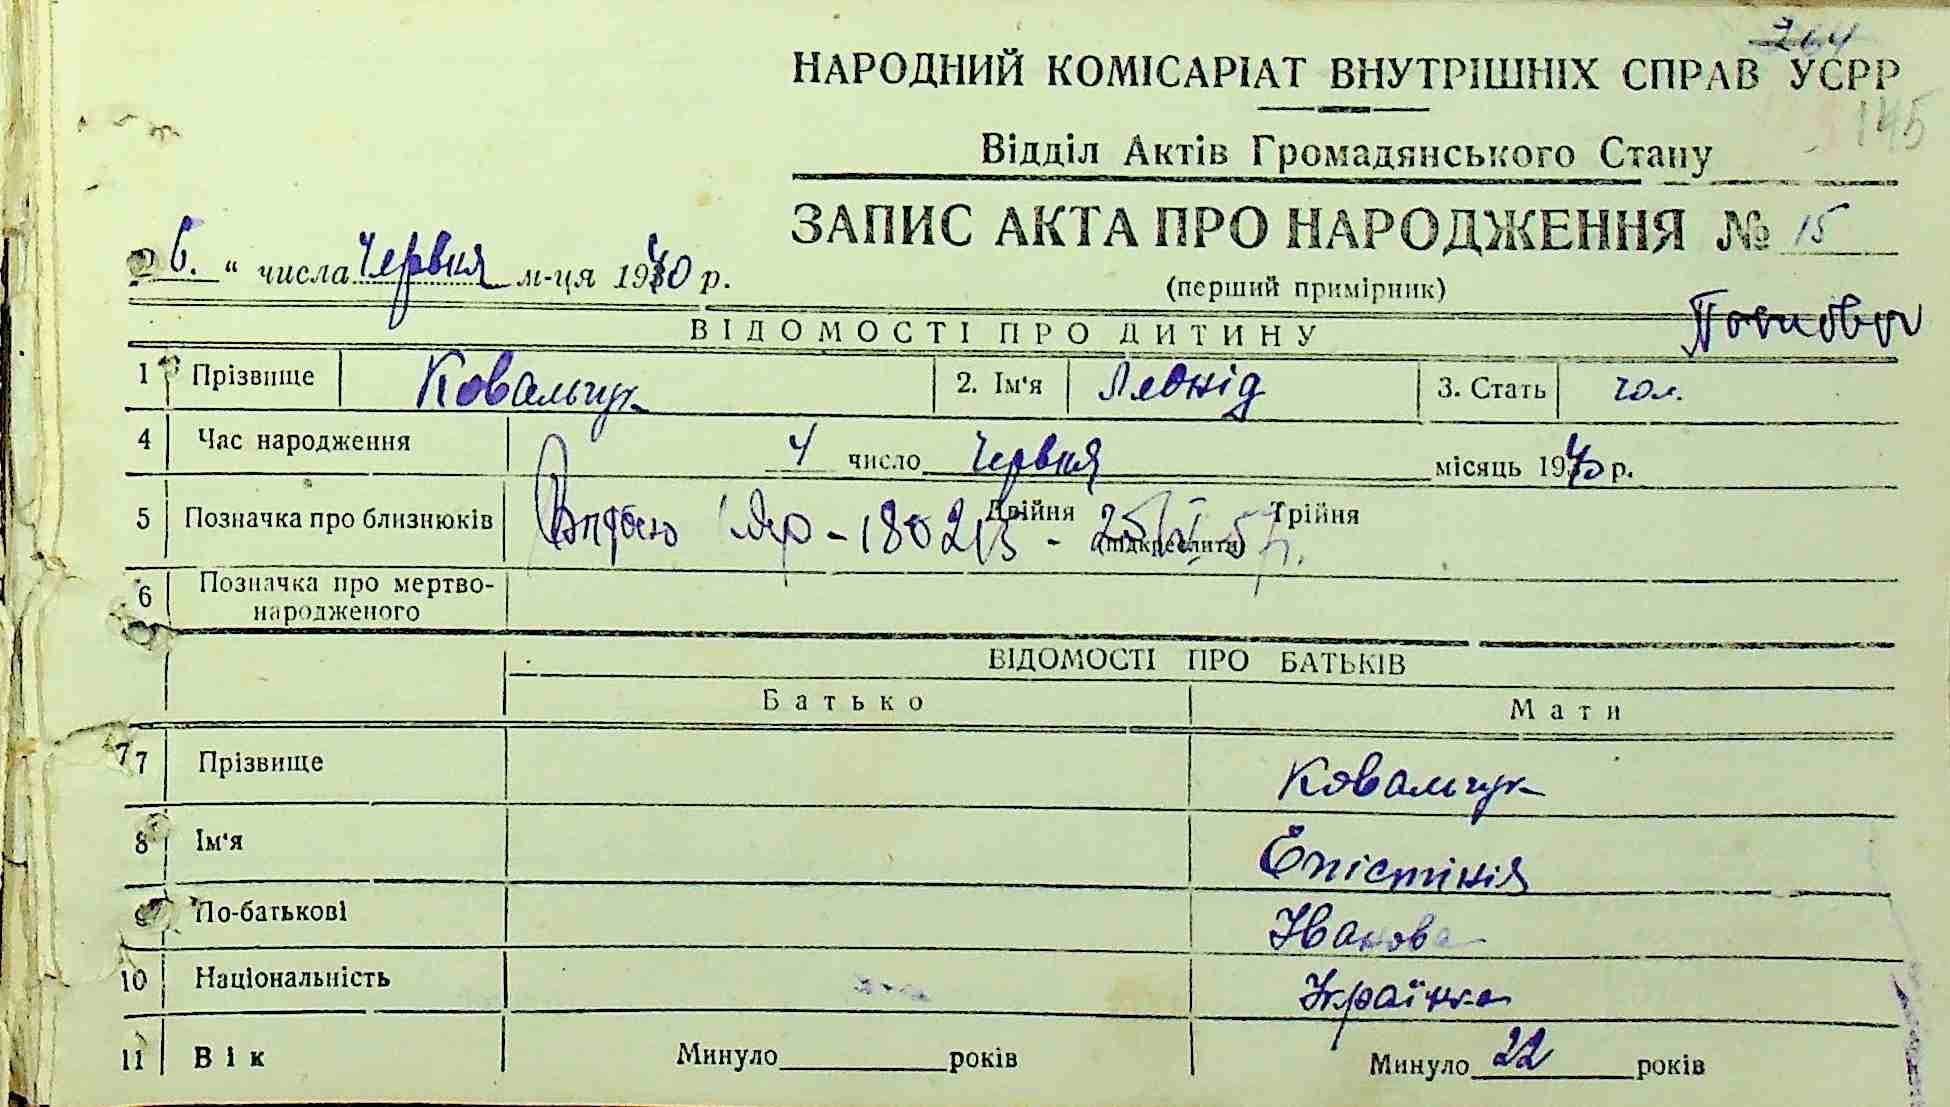 264
НАРОДНИЙ КОМІСАРІАТ ВНУТРІШНІХ СПРАВ УСРР
145
Відділ Актів Громадянського Стану
ЗАПИС АКТА ПРО НАРОДЖЕННЯ № 15
6. “ числа Червня м-ця 1940 р.
(перший примірник)
ВІДОМОСТІ ПРО ДИТИНУ
1 Прізвище Ковальчук 2. Ім'я Леонід 3. Стать чол.
4 Час народження 4 число Червня місяць 1940 р.
5 Позначка про близнюків Двійня Трійня
(підкреслити)
6 Позначка про мертво-
народженого
ВІДОМОСТІ ПРО БАТЬКІВ
Батько Мати
7 Прізвище Ковальчук
8 Ім'я Єпістінія
По-батькові Іванова
10 Національність Українка
11 Вік Минуло років Минуло 22 років